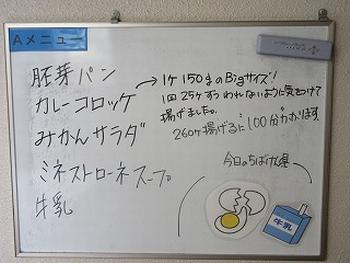 Aメニュー
胚芽パン
カレーコロッケ
→1ケ150gのBigサイズ!
1回25ケずつわれないように気をつけて
揚げました。
260ケ揚げるに100分かかります
みかんサラダ
ミネストローネスープ
牛乳
今日のちばけん産
牛乳